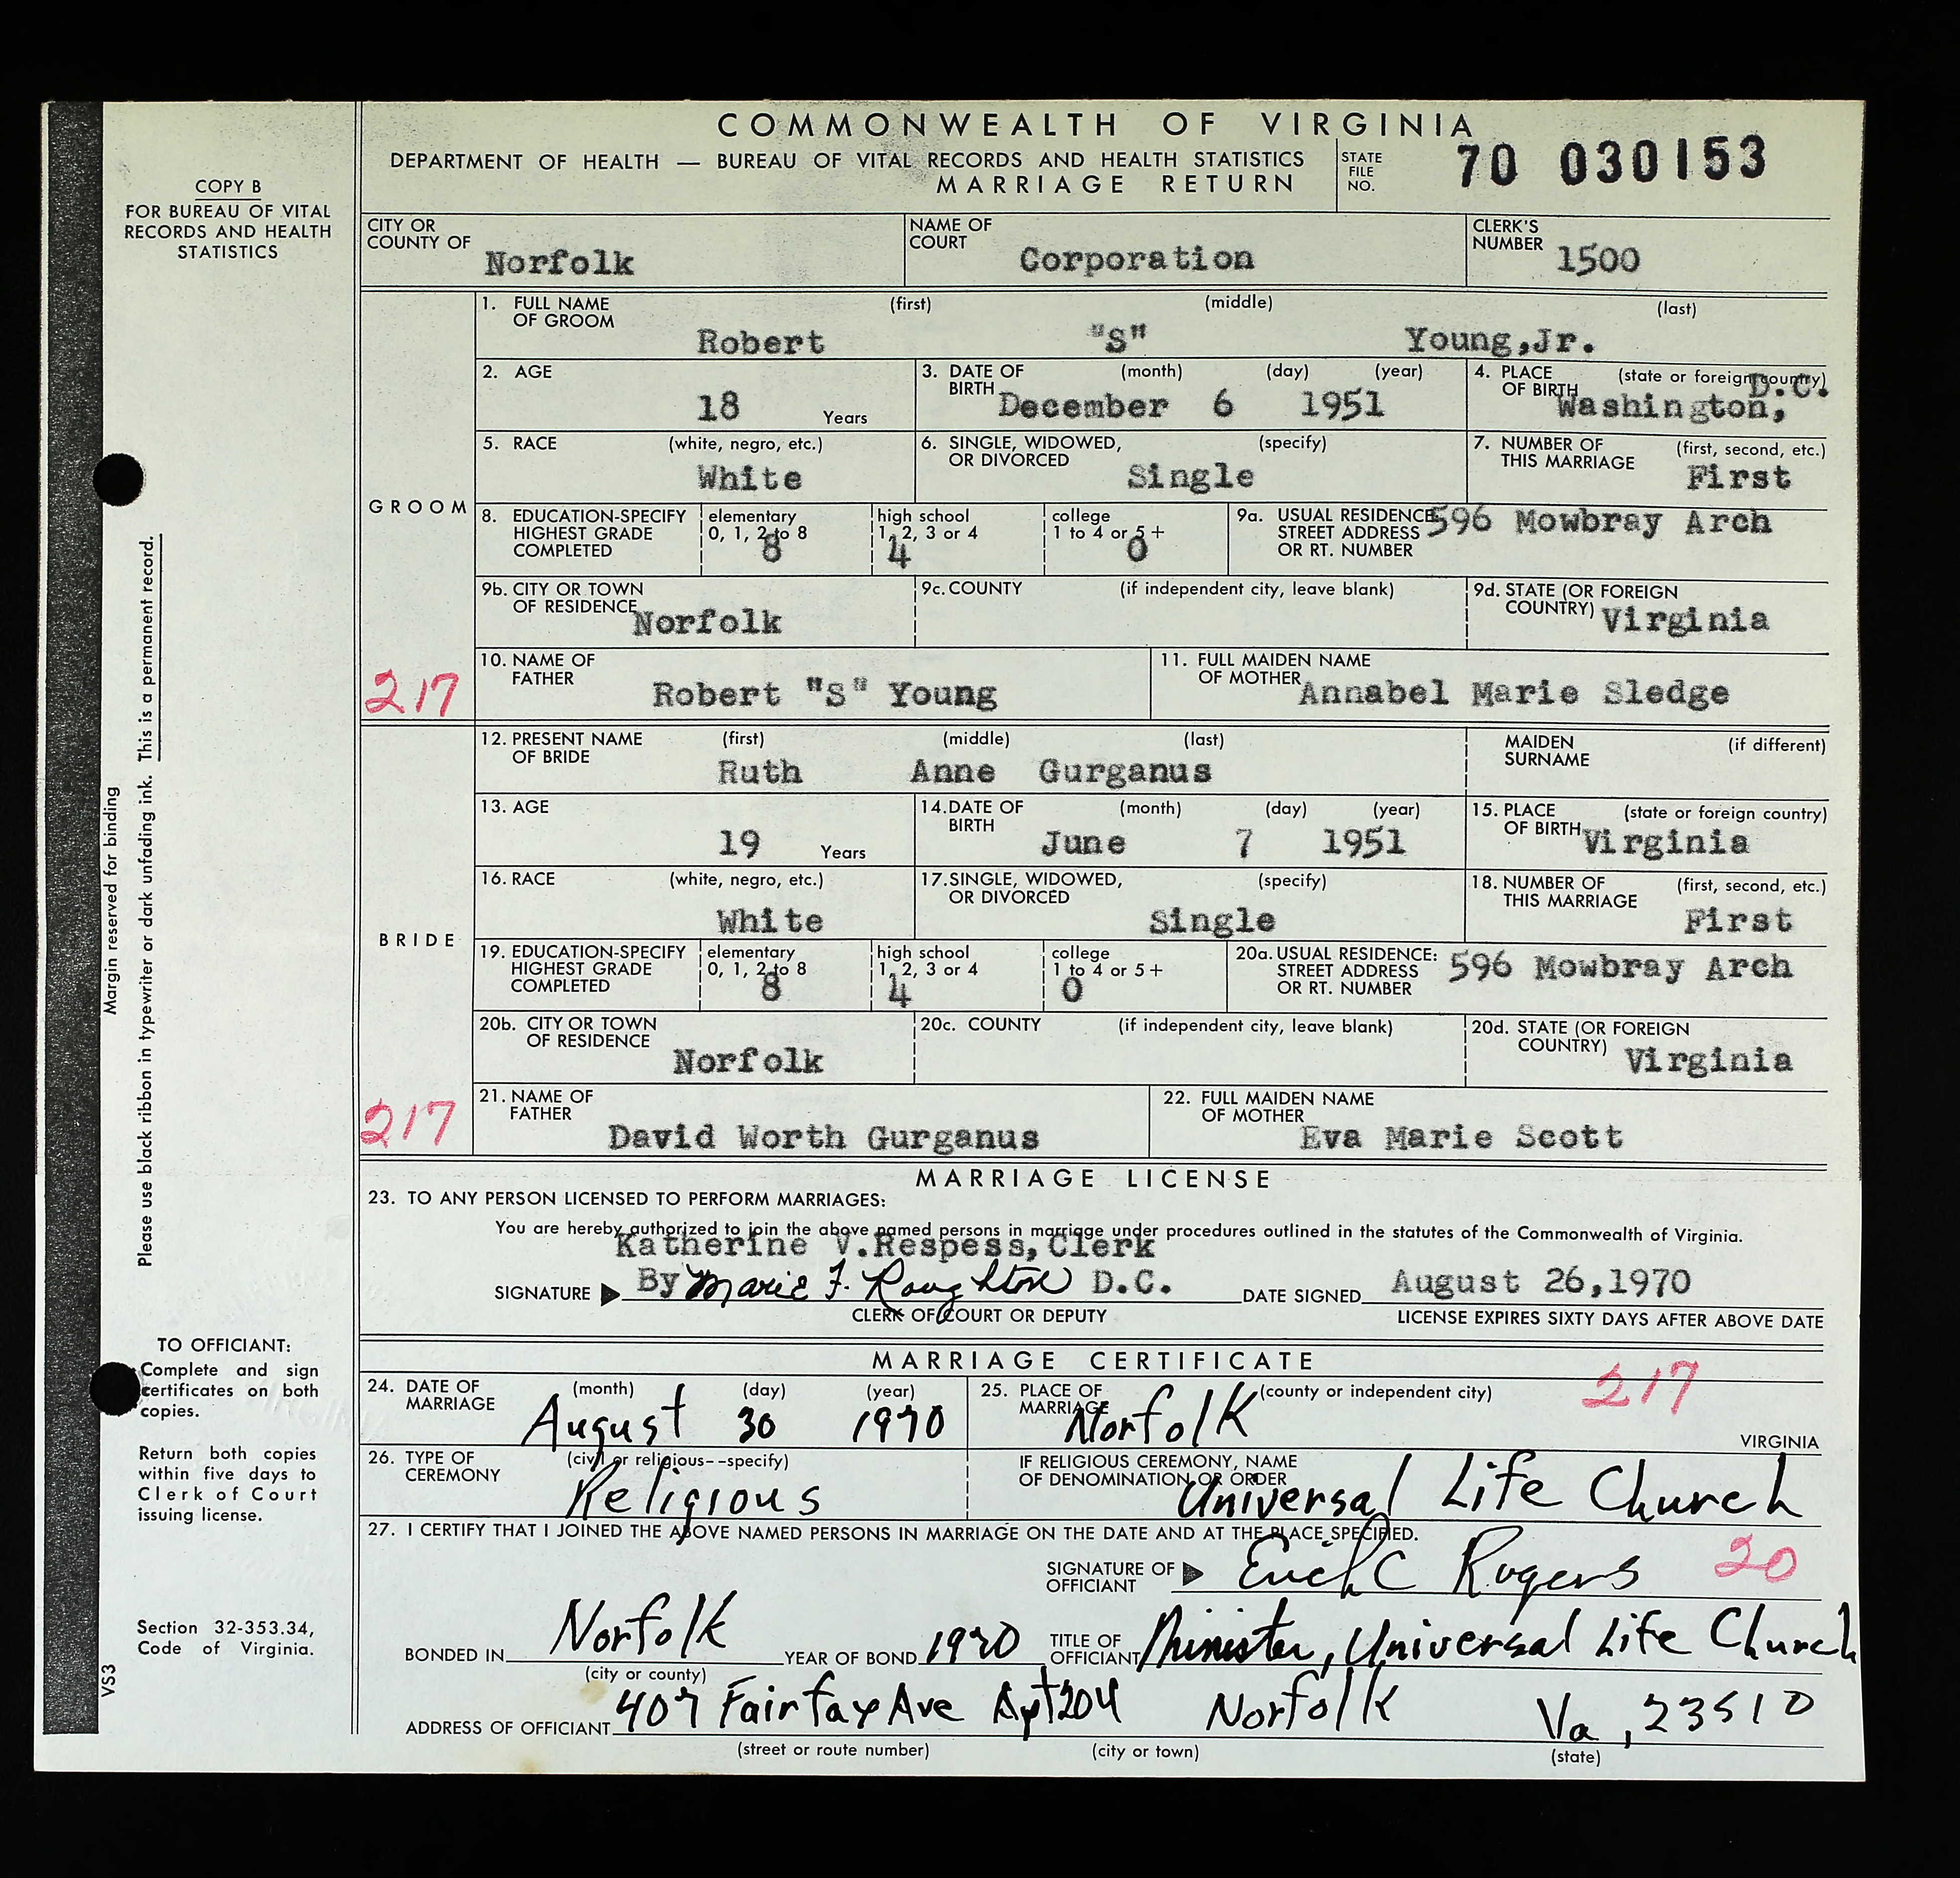 COMMONWEALTH OF VIRGINIA
DEPARTMENT OF HEALTH — BUREAU OF VITAL RECORDS AND HEALTH STATISTICS
MARRIAGE RETURN
STATE FILE NO. 70 030153
COPY B
FOR BUREAU OF VITAL
RECORDS AND HEALTH
STATISTICS
CITY OR COUNTY OF Norfolk NAME OF COURT Corporation CLERK'S NUMBER 1500
GROOM
1. FULL NAME OF GROOM (first) (middle) (last)
Robert "S" Young,Jr.
2. AGE 18 Years 3. DATE OF BIRTH (month) (day) (year) December 6 1951 4. PLACE OF BIRTH (state or foreign country) Washington, D.C.
5. RACE (white, negro, etc.) White 6. SINGLE, WIDOWED, OR DIVORCED (specify) Single 7. NUMBER OF THIS MARRIAGE (first, second, etc.) First
8. EDUCATION-SPECIFY HIGHEST GRADE COMPLETED elementary 0, 1, 2 to 8 8 high school 1, 2, 3 or 4 4 college 1 to 4 or 5+ 0 9a. USUAL RESIDENCE: STREET ADDRESS OR RT. NUMBER 596 Mowbray Arch
9b. CITY OR TOWN OF RESIDENCE Norfolk 9c. COUNTY (if independent city, leave blank) 9d. STATE (OR FOREIGN COUNTRY) Virginia
217
10. NAME OF FATHER Robert "S" Young 11. FULL MAIDEN NAME OF MOTHER Annabel Marie Sledge
BRIDE
12. PRESENT NAME OF BRIDE (first) (middle) (last) MAIDEN SURNAME (if different)
Ruth Anne Gurganus
13. AGE 19 Years 14. DATE OF BIRTH (month) (day) (year) June 7 1951 15. PLACE OF BIRTH (state or foreign country) Virginia
16. RACE (white, negro, etc.) White 17. SINGLE, WIDOWED, OR DIVORCED (specify) Single 18. NUMBER OF THIS MARRIAGE (first, second, etc.) First
19. EDUCATION-SPECIFY HIGHEST GRADE COMPLETED elementary 0, 1, 2 to 8 8 high school 1, 2, 3 or 4 4 college 1 to 4 or 5+ 0 20a. USUAL RESIDENCE: STREET ADDRESS OR RT. NUMBER 596 Mowbray Arch
20b. CITY OR TOWN OF RESIDENCE Norfolk 20c. COUNTY (if independent city, leave blank) 20d. STATE (OR FOREIGN COUNTRY) Virginia
217
21. NAME OF FATHER David Worth Gurganus 22. FULL MAIDEN NAME OF MOTHER Eva Marie Scott
MARRIAGE LICENSE
23. TO ANY PERSON LICENSED TO PERFORM MARRIAGES:
You are hereby authorized to join the above named persons in marriage under procedures outlined in the statutes of the Commonwealth of Virginia.
Katherine V.Respess,Clerk
SIGNATURE By Marie F. Roughton D.C. DATE SIGNED August 26,1970
CLERK OF COURT OR DEPUTY LICENSE EXPIRES SIXTY DAYS AFTER ABOVE DATE
MARRIAGE CERTIFICATE
24. DATE OF MARRIAGE (month) (day) (year) August 30 1970 25. PLACE OF MARRIAGE (county or independent city) Norfolk 217 VIRGINIA
26. TYPE OF CEREMONY (civil or religious--specify) Religious IF RELIGIOUS CEREMONY, NAME OF DENOMINATION OR ORDER Universal Life Church
27. I CERTIFY THAT I JOINED THE ABOVE NAMED PERSONS IN MARRIAGE ON THE DATE AND AT THE PLACE SPECIFIED.
SIGNATURE OF OFFICIANT Erich C Rogers 20
BONDED IN Norfolk YEAR OF BOND 1970 TITLE OF OFFICIANT Minister, Universal Life Church
(city or county)
ADDRESS OF OFFICIANT 407 Fairfax Ave Apt 204 Norfolk Va, 23510
(street or route number) (city or town) (state)
Margin reserved for binding
Please use black ribbon in typewriter or dark unfading ink. This is a permanent record.
TO OFFICIANT:
Complete and sign
certificates on both
copies.
Return both copies
within five days to
Clerk of Court
issuing license.
Section 32-353.34,
Code of Virginia.
VS3